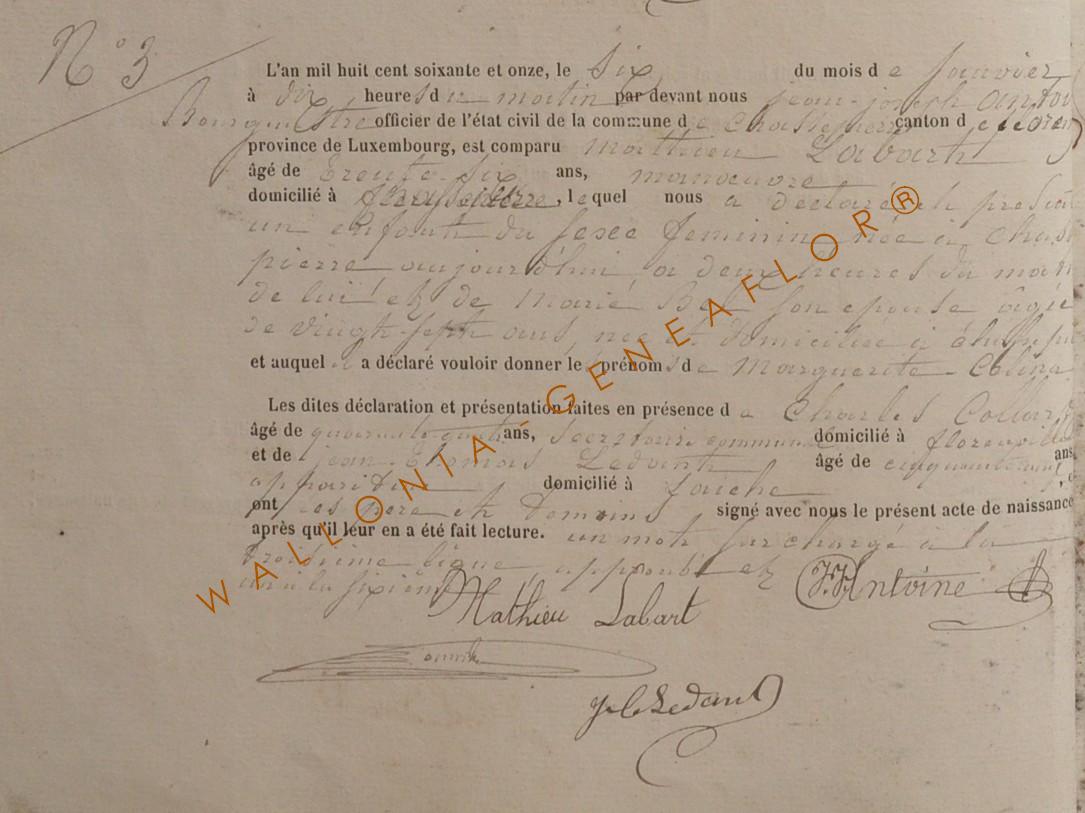 N° 3
L'an mil huit cent soixante et onze, le six du mois de janvier
à dix heures du matin par devant nous jean-joseph antoi
Bourgmestre officier de l'état civil de la commune de Chassepierre canton de floren
province de Luxembourg, est comparu Mathieu Labart
âgé de trente-six ans, manoeuvre
domicilié à , lequel nous a déclaré et présen
un enfant du sexe feminin née à Chass
pierre aujourd'hui a deux heures du mat
de lui et de Marie son epouse âgée
de vingt-sept ans, née et domiciliée à
et auquel il a déclaré vouloir donner les prénoms de Marguerite-Celina
Les dites déclaration et présentation faites en présence de Charles Collar
âgé de quarante ans, secretaire communal domicilié à florenville
et de jean Thomas Ledant âgé de cinquante ans
domicilié à
ont les pere et temoins signé avec nous le présent acte de naissance
après qu'il leur en a été fait lecture. un mot surchargé à la
troisième ligne approuvé et
un à la sixième
J.J. Antoine
Mathieu Labart
Ledant
WALLONIA-GENEAFLOR®